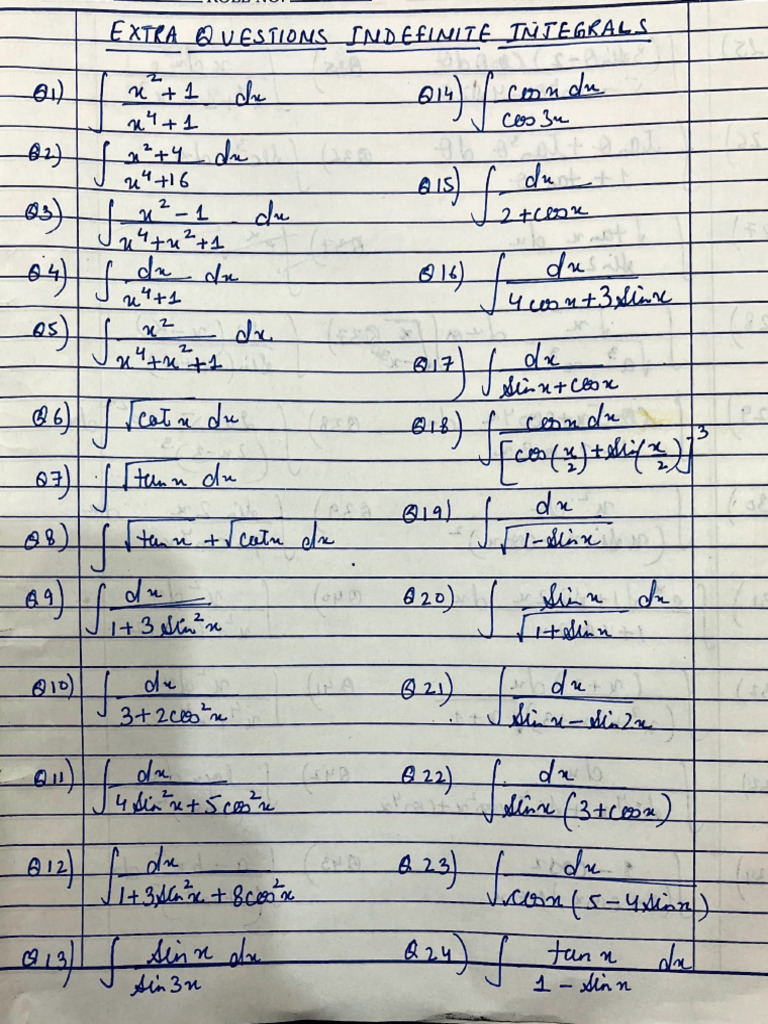 ROLL NO.
EXTRA QUESTIONS INDEFINITE INTEGRALS
Q1) ∫ (x² + 1)/(x⁴ + 1) dx
Q2) ∫ (x² + 4)/(x⁴ + 16) dx
Q3) ∫ (x² - 1)/(x⁴ + x² + 1) dx
Q4) ∫ dx/(x⁴ + 1) dx
Q5) ∫ x²/(x⁴ + x² + 1) dx
Q6) ∫ √(cot x) dx
Q7) ∫ √(tan x) dx
Q8) ∫ √(tan x) + √(cot x) dx
Q9) ∫ dx/(1 + 3 sin²x)
Q10) ∫ dx/(3 + 2cos²x)
Q11) ∫ dx/(4 sin²x + 5 cos²x)
Q12) ∫ dx/(1 + 3sin²x + 8cos²x)
Q13) ∫ sin x/sin 3x dx
Q14) ∫ cos x dx/cos 3x
Q15) ∫ dx/(2 + cos x)
Q16) ∫ dx/(4 cos x + 3 sin x)
Q17) ∫ dx/(sin x + cos x)
Q18) ∫ cos x dx/[cos(x/2) + sin(x/2)]³
Q19) ∫ dx/√(1 - sin x)
Q20) ∫ sin x/√(1 + sin x) dx
Q21) ∫ dx/(sin x - sin 2x)
Q22) ∫ dx/(sin x (3 + cos x))
Q23) ∫ dx/(cos x (5 - 4 sin x))
Q24) ∫ tan x/(1 - sin x) dx